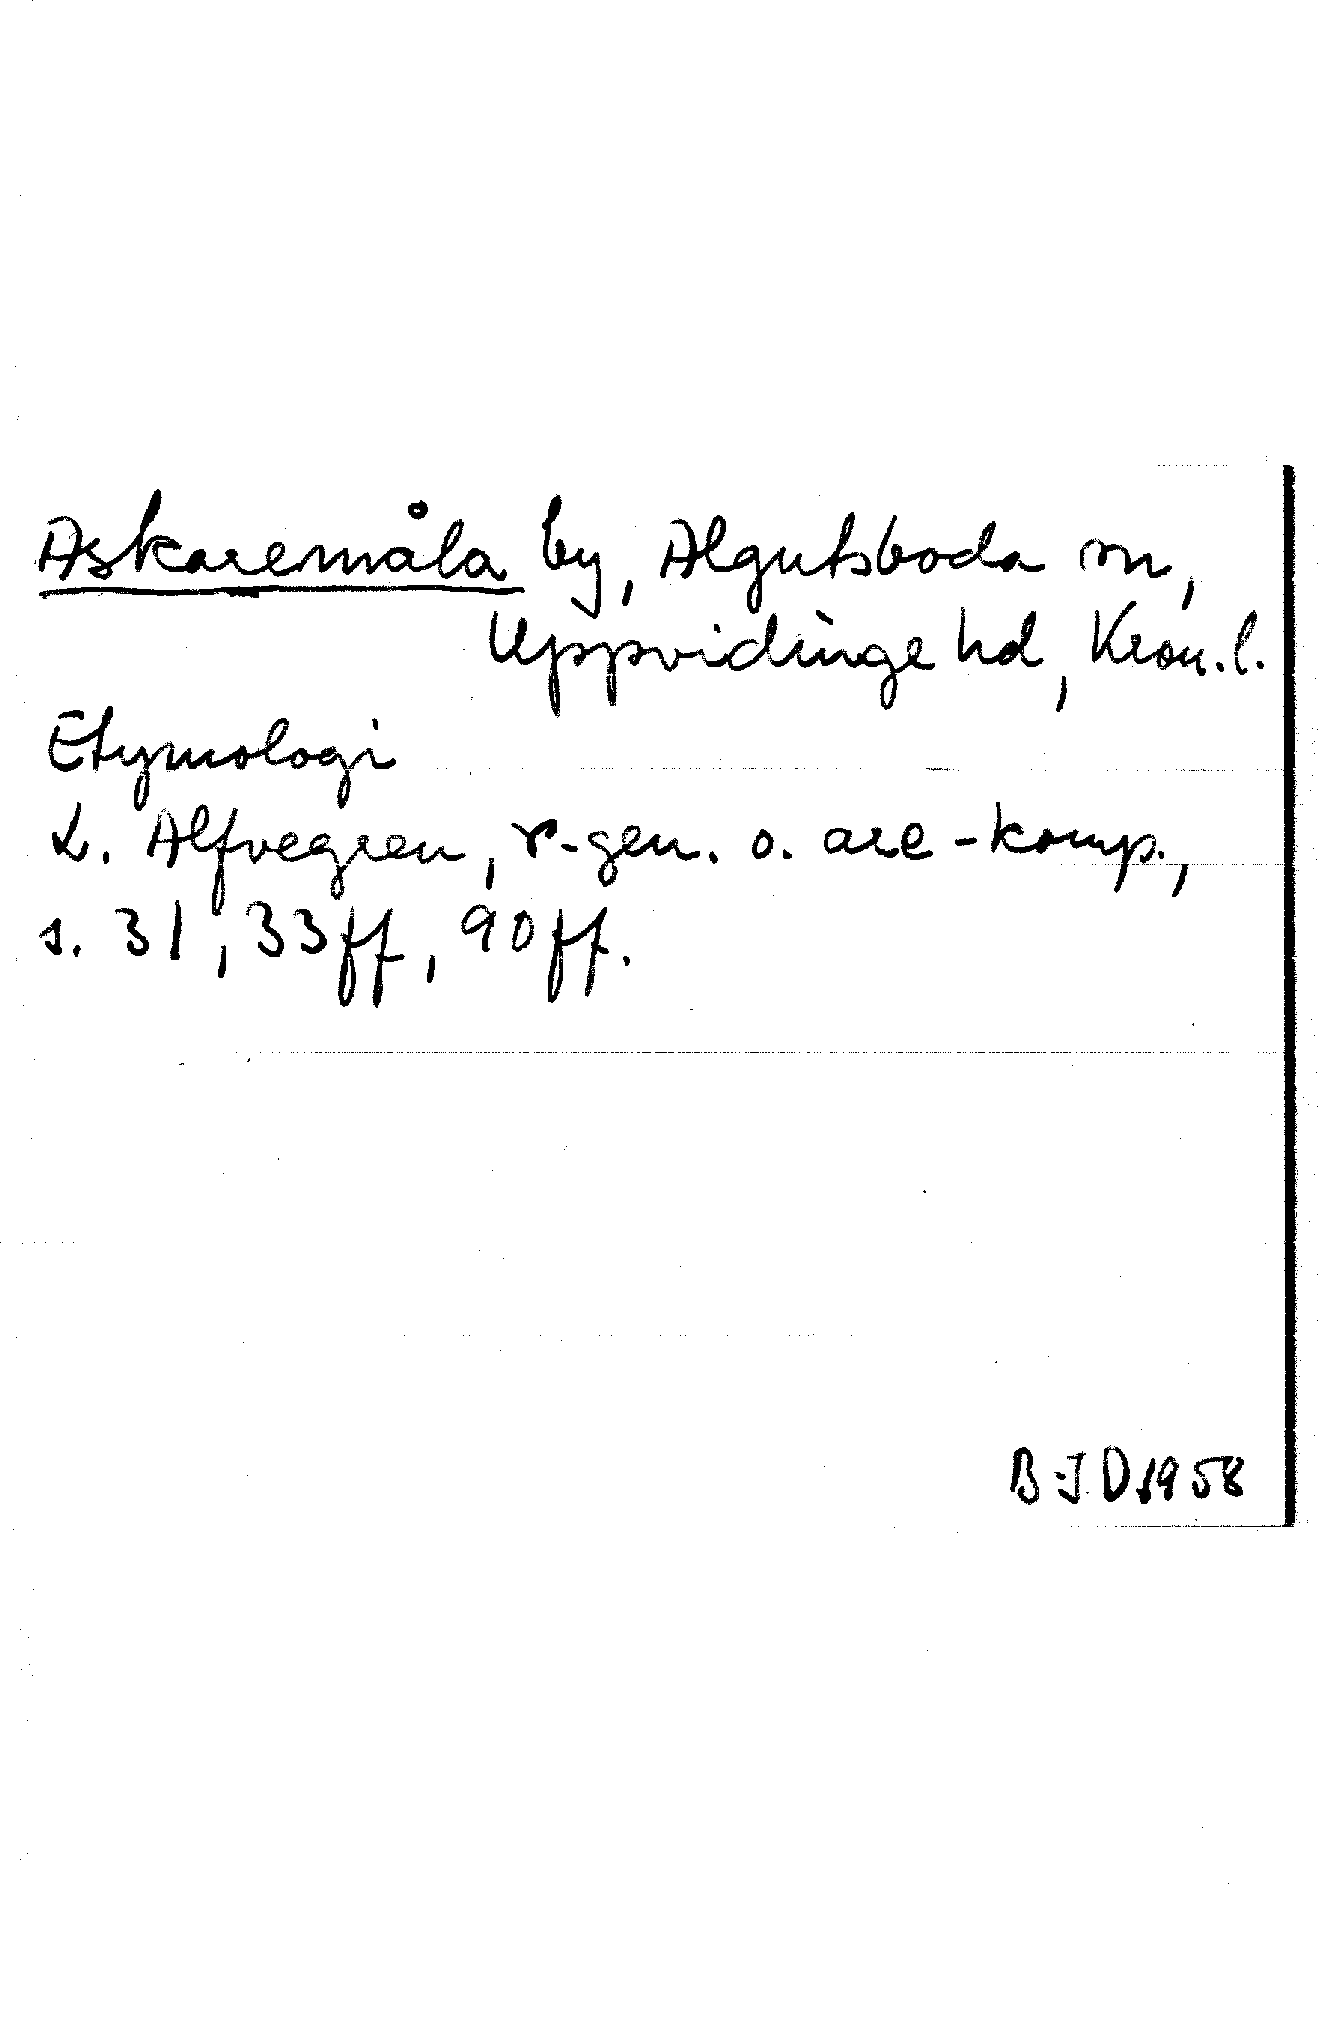 Askaremåla by, Algutsboda sn,
Uppvidinge hd, Kron.l.
Etymologi
L. Alfvegren, r-gen. o. are-komp.,
s. 31, 33ff, 90ff.
B-JD 1958